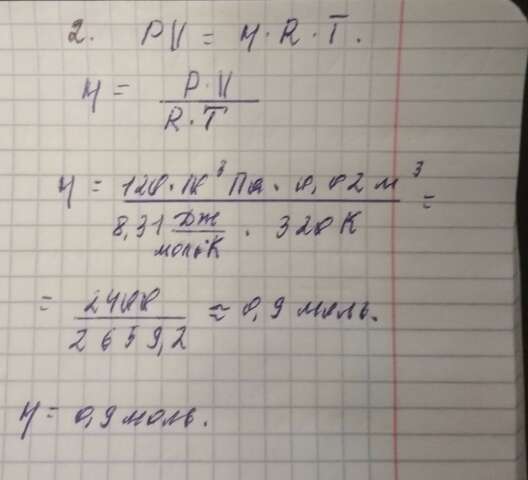 2. PV = И · R · T.
И = P · V / R · T
И = 120 · 10³ Па · 0,02 м³ / 8,31 Дж/моль·К · 320 К =
= 2400 / 2659,2 ≈ 0,9 моль.
И = 0,9 моль.